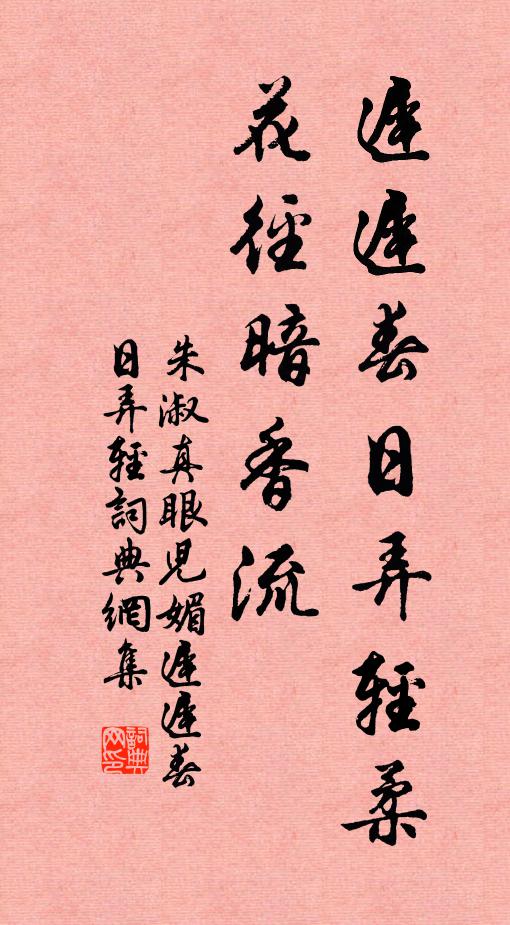 遲遲春日弄輕柔
花徑暗香流
朱淑真眼兒媚遲遲春
日弄輕詞典網集
詞典网印